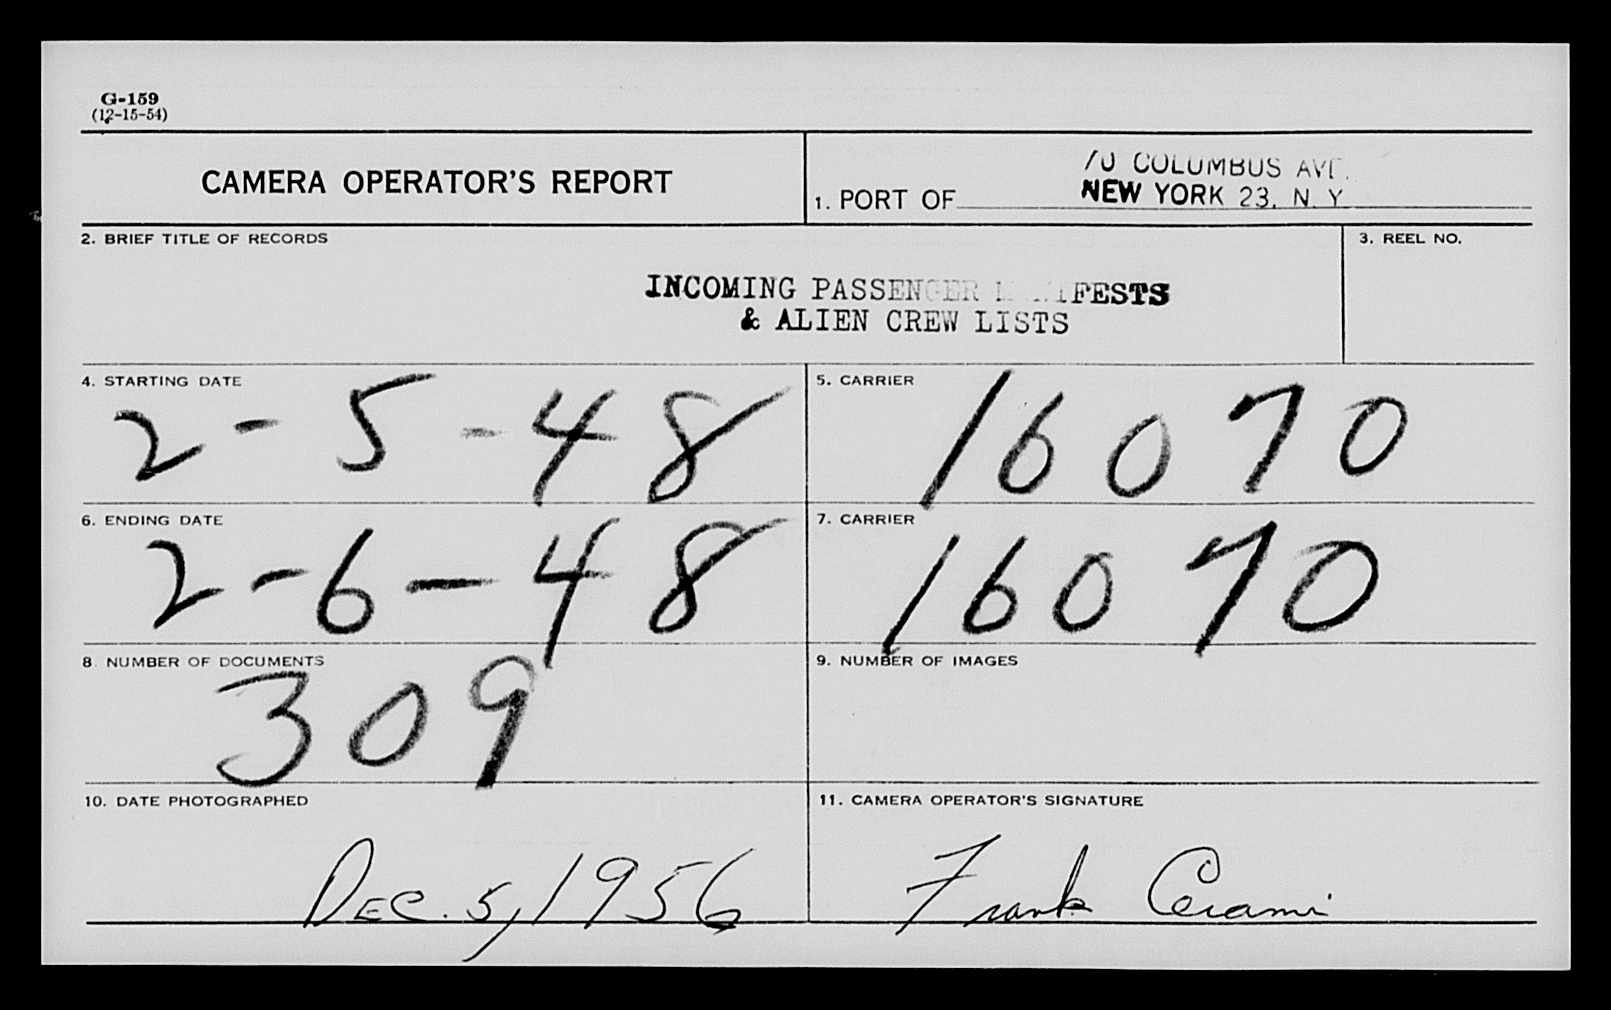 G-159
(12-15-54)
CAMERA OPERATOR'S REPORT
70 COLUMBUS AVE.
1. PORT OF NEW YORK 23, N. Y.
2. BRIEF TITLE OF RECORDS
3. REEL NO.
INCOMING PASSENGER MANIFESTS
& ALIEN CREW LISTS
4. STARTING DATE
2-5-48
5. CARRIER
16070
6. ENDING DATE
2-6-48
7. CARRIER
16070
8. NUMBER OF DOCUMENTS
309
9. NUMBER OF IMAGES
10. DATE PHOTOGRAPHED
Dec. 5, 1956
11. CAMERA OPERATOR'S SIGNATURE
Frank Cerami